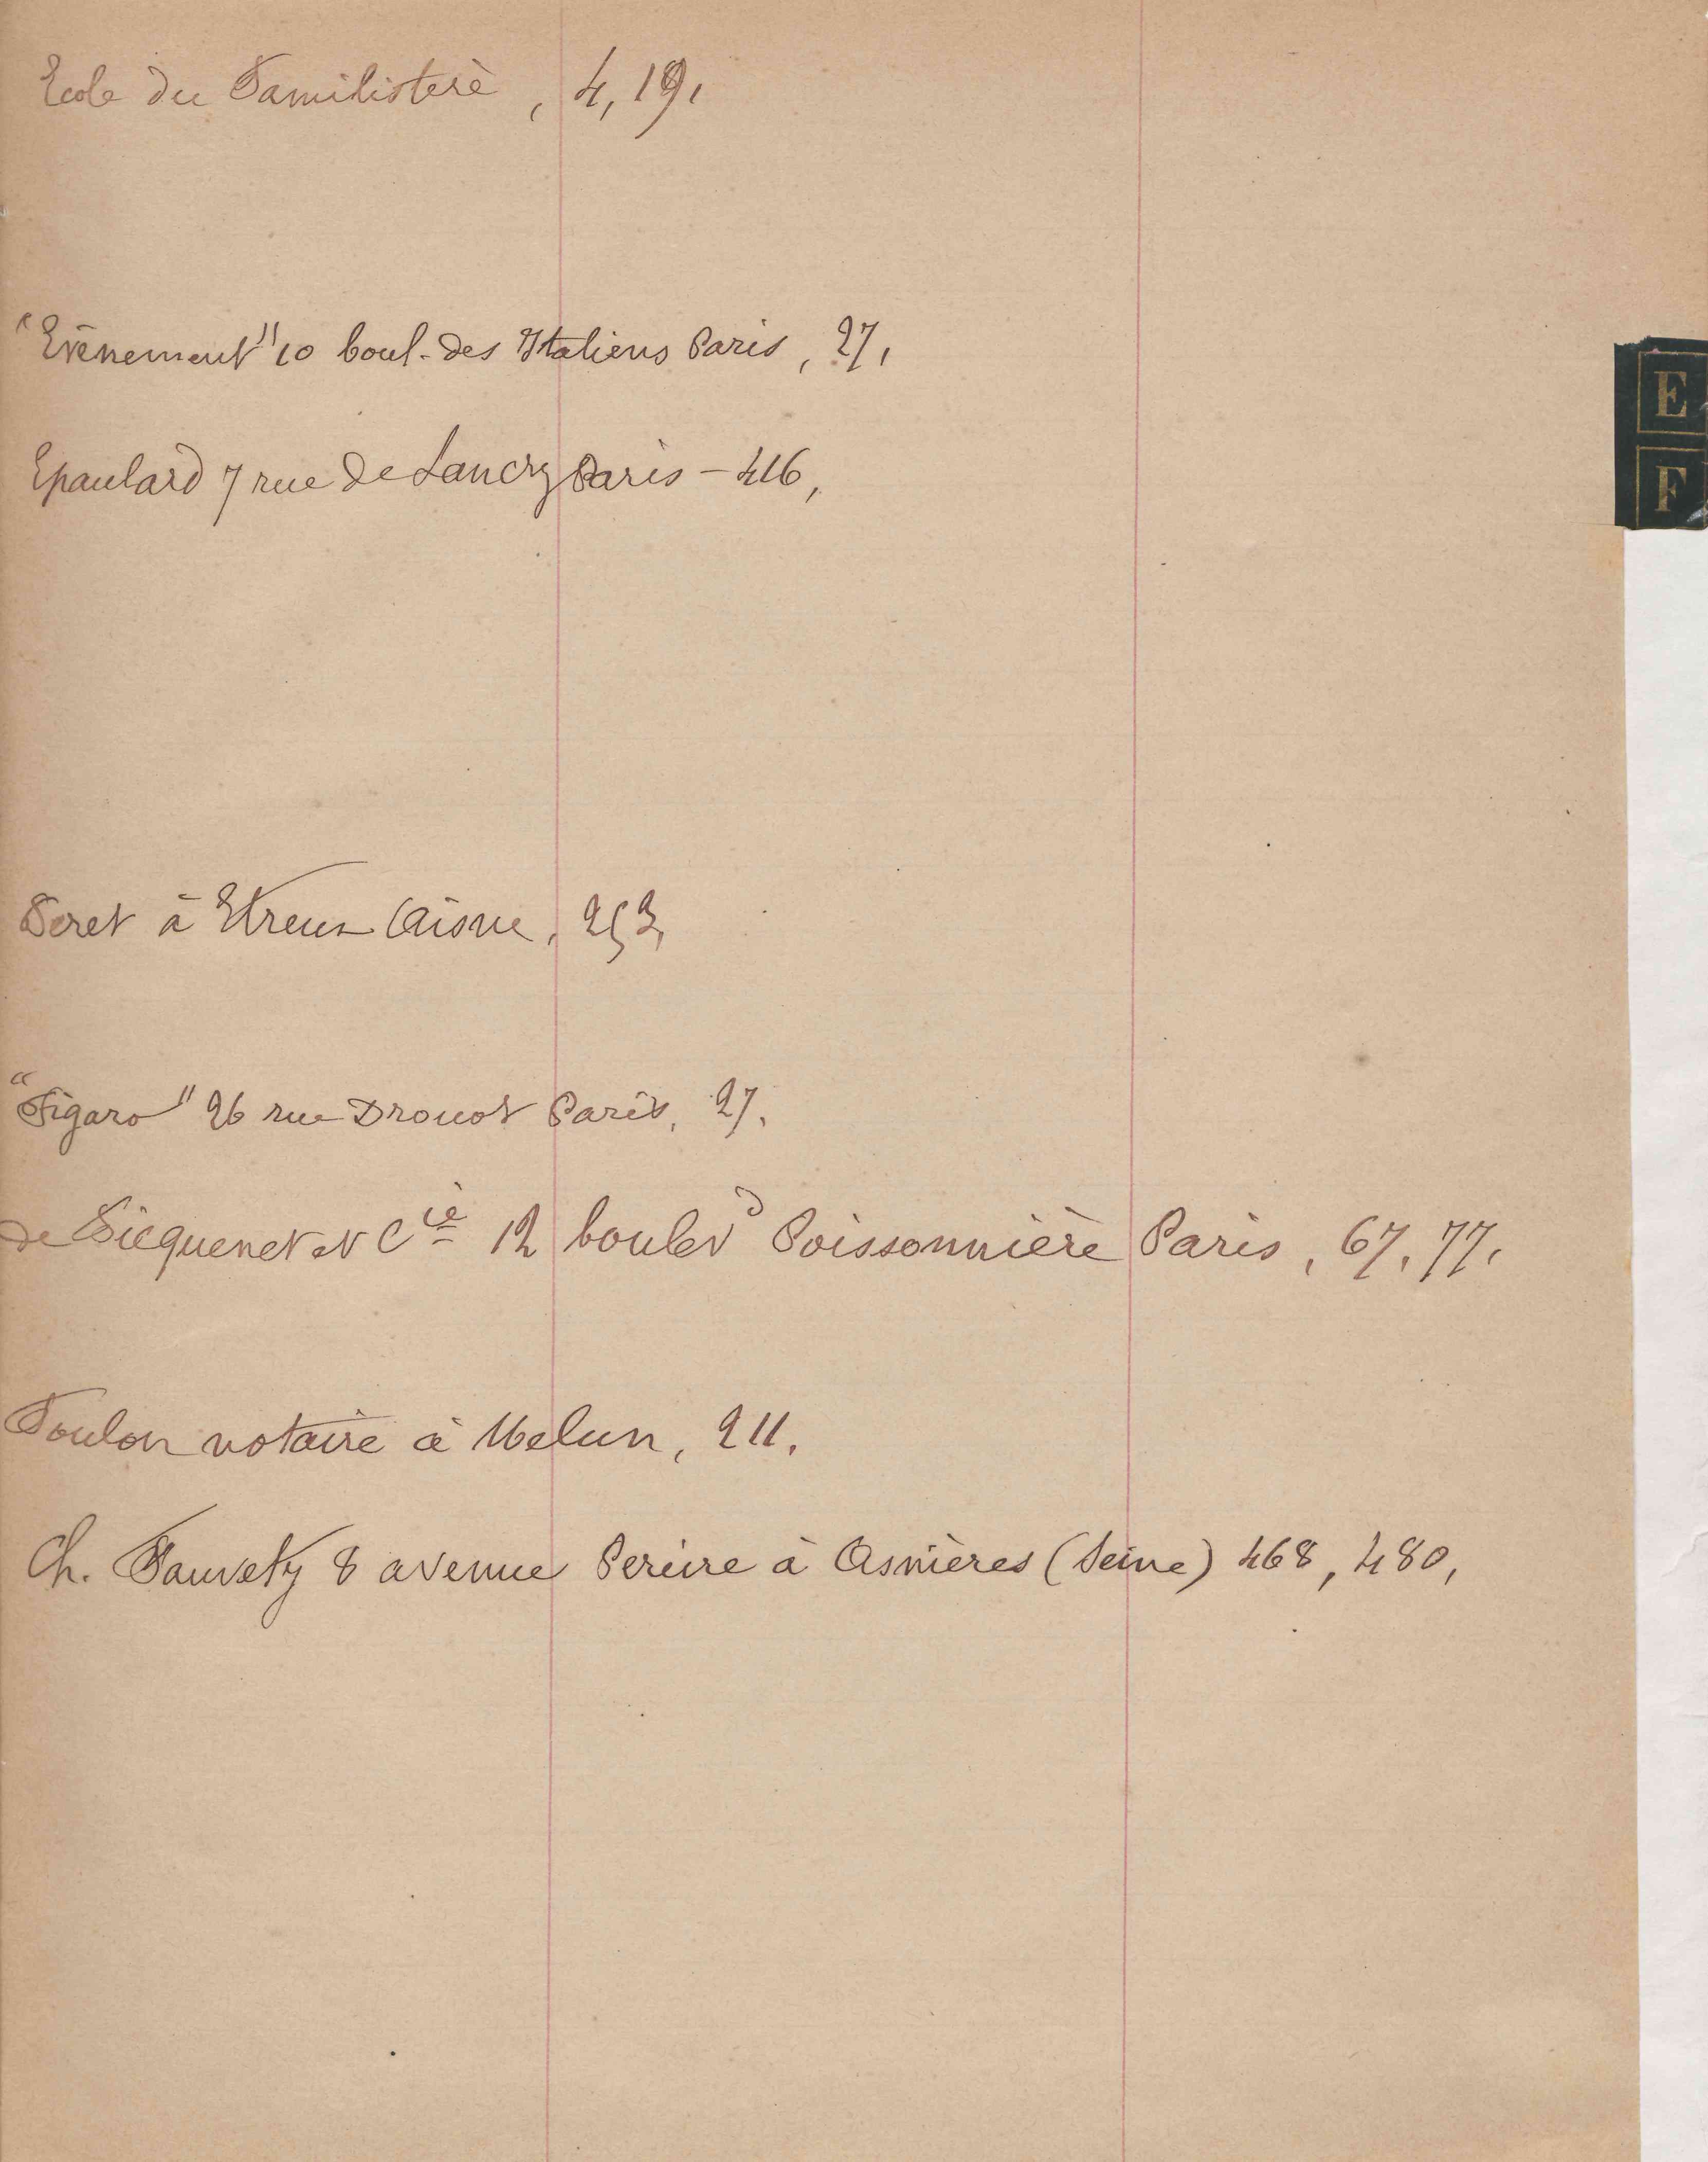 Ecole du Familistère, 4, 19,
"Evènement" 10 boul. des Italiens Paris, 27,
E
Epaulard 7 rue de Lancry Paris – 416,
F
Feret à Etreux Aisne, 253,
"Figaro" 26 rue Drouot Paris, 27.
de Ficquenet et Cie 12 boulevd Poissonnière Paris, 67, 77,
Foulon notaire à Melun, 211.
Ch. Fauvety 8 avenue Pereire à Asnières (Seine) 468, 480,